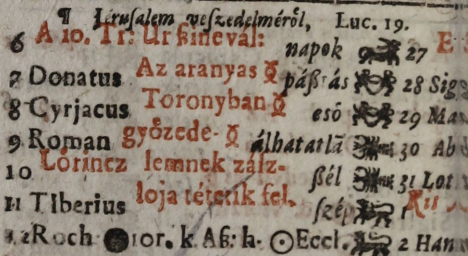 ¶ Jerusalem veszedelméről, Luc. 19.
6 A 10. Tr: Ur ßine vál: napok 27 E
7 Donatus Az aranyas páßtás 28 Sig
8 Cyrjacus Toronyban eső 29 Ma
9 Roman győzede- álhatatlā 30 Ab
10 Lőrincz lemnek zász- ßél 31 Lot
11 Tiberius loja tétetik fel. szép 1
12 Roch 10r. k. Aß: h. Eccl. 2 Han